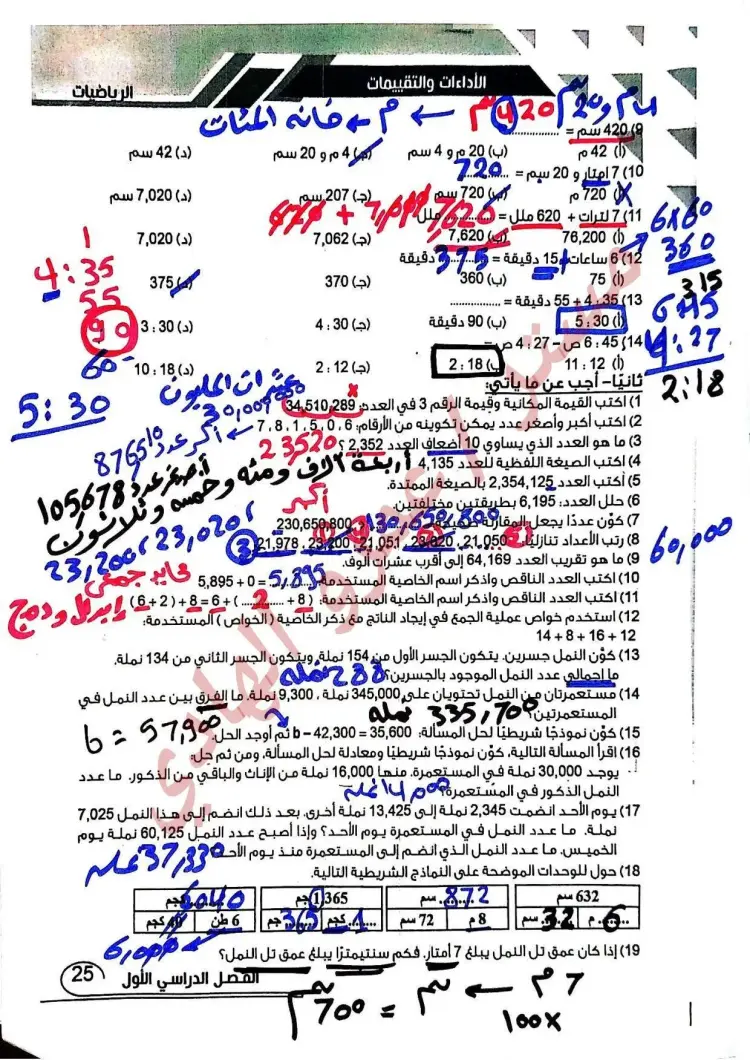 الأداءات والتقييمات
الرياضيات
4 م و 20 سم 420 سم
م ← خانه المئات
9) 420 سم = ..............
(أ) 42 م (ب) 20 م و 4 سم (جـ) 4 م و 20 سم (د) 42 سم
10) 7 أمتار و 20 سم = .............. 720
(أ) 720 م (ب) 720 سم (جـ) 207 سم (د) 7,020 سم
11) 7 لترات + 620 ملل = .............. ملل
(أ) 76,200 (ب) 7,620 (جـ) 7,062 (د) 7,020
12) 6 ساعات، 15 دقيقة = 375 دقيقة
(أ) 75 (ب) 360 (جـ) 370 (د) 375
6×60
360
315
13) 4 : 35 + 55 دقيقة = ..............
(أ) 5 : 30 (ب) 90 دقيقة (جـ) 4 : 30 (د) 3 : 30
1
4 : 35
55
90
60
5 : 30
14) 6 : 45 ص – 4 : 27 ص =
(أ) 11 : 12 (ب) 2 : 18 (جـ) 2 : 12 (د) 10 : 18
4 : 27
2 : 18
ثانيًا– أجب عن ما يأتي:
1) اكتب القيمة المكانية وقيمة الرقم 3 في العدد: 34,510,289
عشرات المليون
30,000,000
2) اكتب أكبر وأصغر عدد يمكن تكوينه من الأرقام: 6 ، 0 ، 5 ، 1 ، 8 ، 7
أكبر عدد 876510
أصغر عدد 105678
3) ما هو العدد الذي يساوي 10 أضعاف العدد 2,352 ؟ 23520
4) اكتب الصيغة اللفظية للعدد 4,135
أربعة آلاف ومئه وخمسه وثلاثون
5) أكتب العدد 2,354,125 بالصيغة الممتدة.
6) حلل العدد: 6,195 بطريقتين مختلفتين.
7) كوّن عددًا يجعل المقارنة صحيحة: 230,650,800
أكبر
8) رتب الأعداد تنازليًا: 21,050 ، 23,020 ، 21,051 ، 23,200 ، 21,978
23,200 ، 23,020 ،
9) ما هو تقريب العدد 64,169 إلى أقرب عشرات الألوف. 60,000
10) اكتب العدد الناقص واذكر اسم الخاصية المستخدمة: 5,895 + 0 = 5,895
محايد جمعي
11) اكتب العدد الناقص واذكر اسم الخاصية المستخدمة: (6 + 2) + 8 = 6 + (2 + 8)
إبدال ودمج
12) استخدم خواص عملية الجمع في إيجاد الناتج مع ذكر الخاصية ( الخواص ) المستخدمة:
14 + 8 + 16 + 12
13) كوّن النمل جسرين. يتكون الجسر الأول من 154 نملة، ويتكون الجسر الثاني من 134 نملة.
ما إجمالي عدد النمل الموجود بالجسرين؟ 288 نمله
14) مستعمرتان من النمل تحتويان على 345,000 نملة ، 9,300 نملة. ما الفرق بين عدد النمل في
المستعمرتين؟ 335,700 نمله
15) كوّن نموذجًا شريطيًا لحل المسألة: b – 42,300 = 35,600 ثم أوجد الحل.
b = 57,900
16) اقرأ المسألة التالية، كوّن نموذجًا شريطيًا ومعادلة لحل المسألة، ومن ثم حل:
يوجد 30,000 نملة في المستعمرة. منها 16,000 نملة من الإناث والباقي من الذكور. ما عدد
النمل الذكور في المستعمرة؟ 14,000 نمله
17) يوم الأحد انضمت 2,345 نملة إلى 13,425 نملة أخرى. بعد ذلك انضم إلى هذا النمل 7,025
نملة. ما عدد النمل في المستعمرة يوم الأحد؟ وإذا أصبح عدد النمل 60,125 نملة يوم
الخميس. ما عدد النمل الذي انضم إلى المستعمرة منذ يوم الأحد؟ 37,330 نمله
18) حول للوحدات الموضحة على النماذج الشريطية التالية.
632 سم 872 سم 1,365 جم 6040 كجم
6 م 32 سم 8 م 72 سم 1 كجم 365 جم 6 طن 40 كجم
6,000
19) إذا كان عمق تل النمل يبلغ 7 أمتار. فكم سنتيمترًا يبلغ عمق تل النمل؟
7 م ← سم = 700 سم
100×
الفصل الدراسي الأول
25